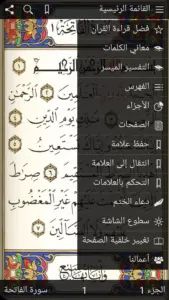 القائمة الرئيسية
فضل قراءة القرآن
معاني الكلمات
التفسير الميسر
الفهرس
الأجزاء
الصفحات
حفظ علامة
انتقال إلى العلامة
التحكم بالعلامات
دعاء الختم
سطوع الشاشة
تغيير خلفية الصفحة
أعمالنا
الرحمن
الدين
نستعين
صراط
غير المغضوب
الجزء 1
سورة الفاتحة